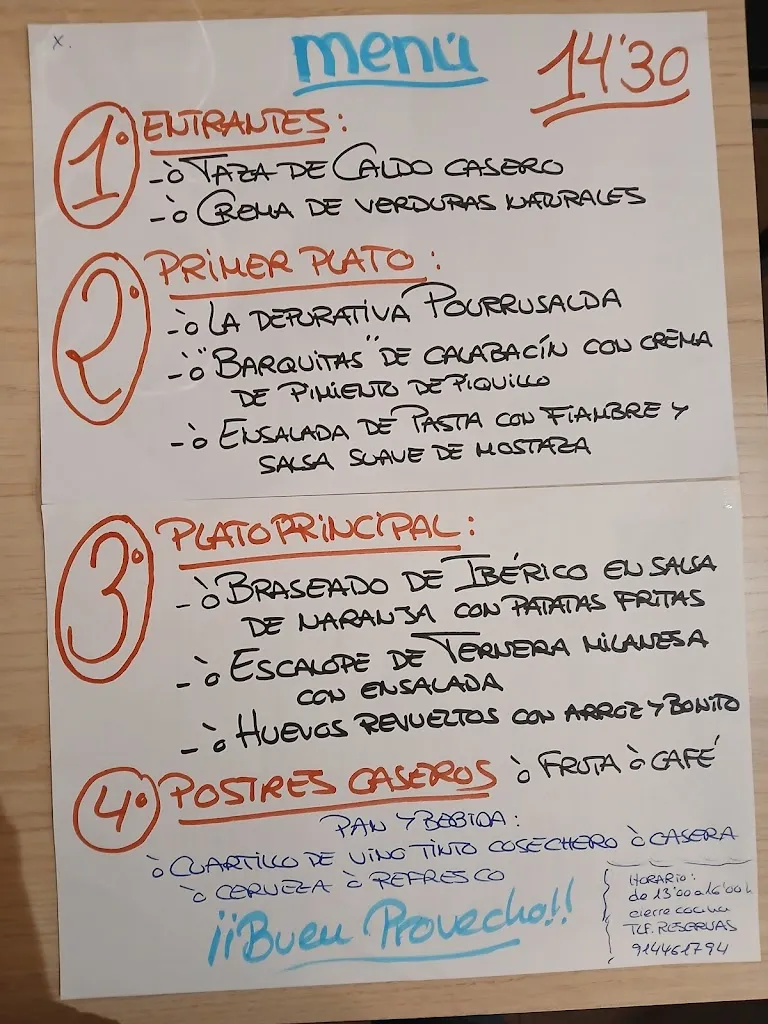 x.
menú
14'30
1º ENTRANTES:
-ò TAZA DE CALDO CASERO
-ò CREMA DE VERDURAS NATURALES
2º PRIMER PLATO:
-ò LA DEPURATIVA POURRUSALDA
-ò "BARQUITAS" DE CALABACÍN CON CREMA
DE PIMIENTO DE PIQUILLO
-ò ENSALADA DE PASTA CON FIAMBRE Y
SALSA SUAVE DE MOSTAZA
3º PLATO PRINCIPAL:
-ò BRASEADO DE IBÉRICO EN SALSA
DE NARANJA CON PATATAS FRITAS
-ò ESCALOPE DE TERNERA MILANESA
CON ENSALADA
-ò HUEVOS REVUELTOS CON ARROZ Y BONITO
4º POSTRES CASEROS ò FRUTA ò CAFÉ
PAN Y BEBIDA:
ò CUARTILLO DE VINO TINTO COSECHERO ò CASERA
ò CERVEZA ò REFRESCO
¡¡Buen Provecho!!
HORARIO:
de 13'00 a 16'00h
cierre cocina
TLF. RESERVAS
914461794